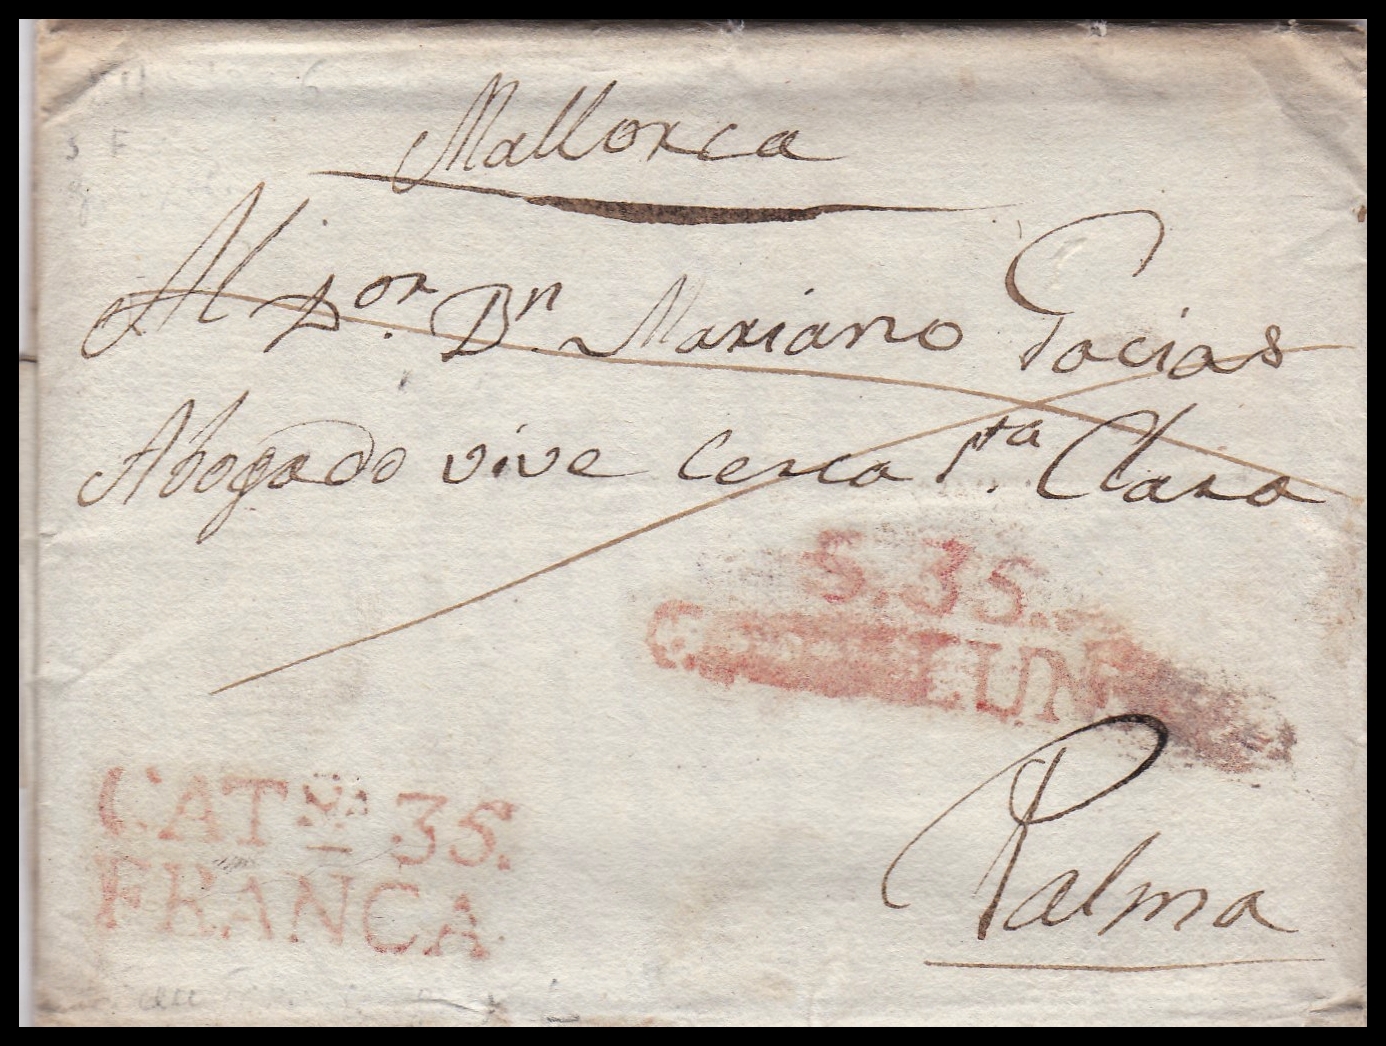 Mallorca
Al Dor. Dn. Mariano Gacias
Abogado vive Cerca Sta. Clara
S.35.
Palma
CATNA.35.
FRANCA